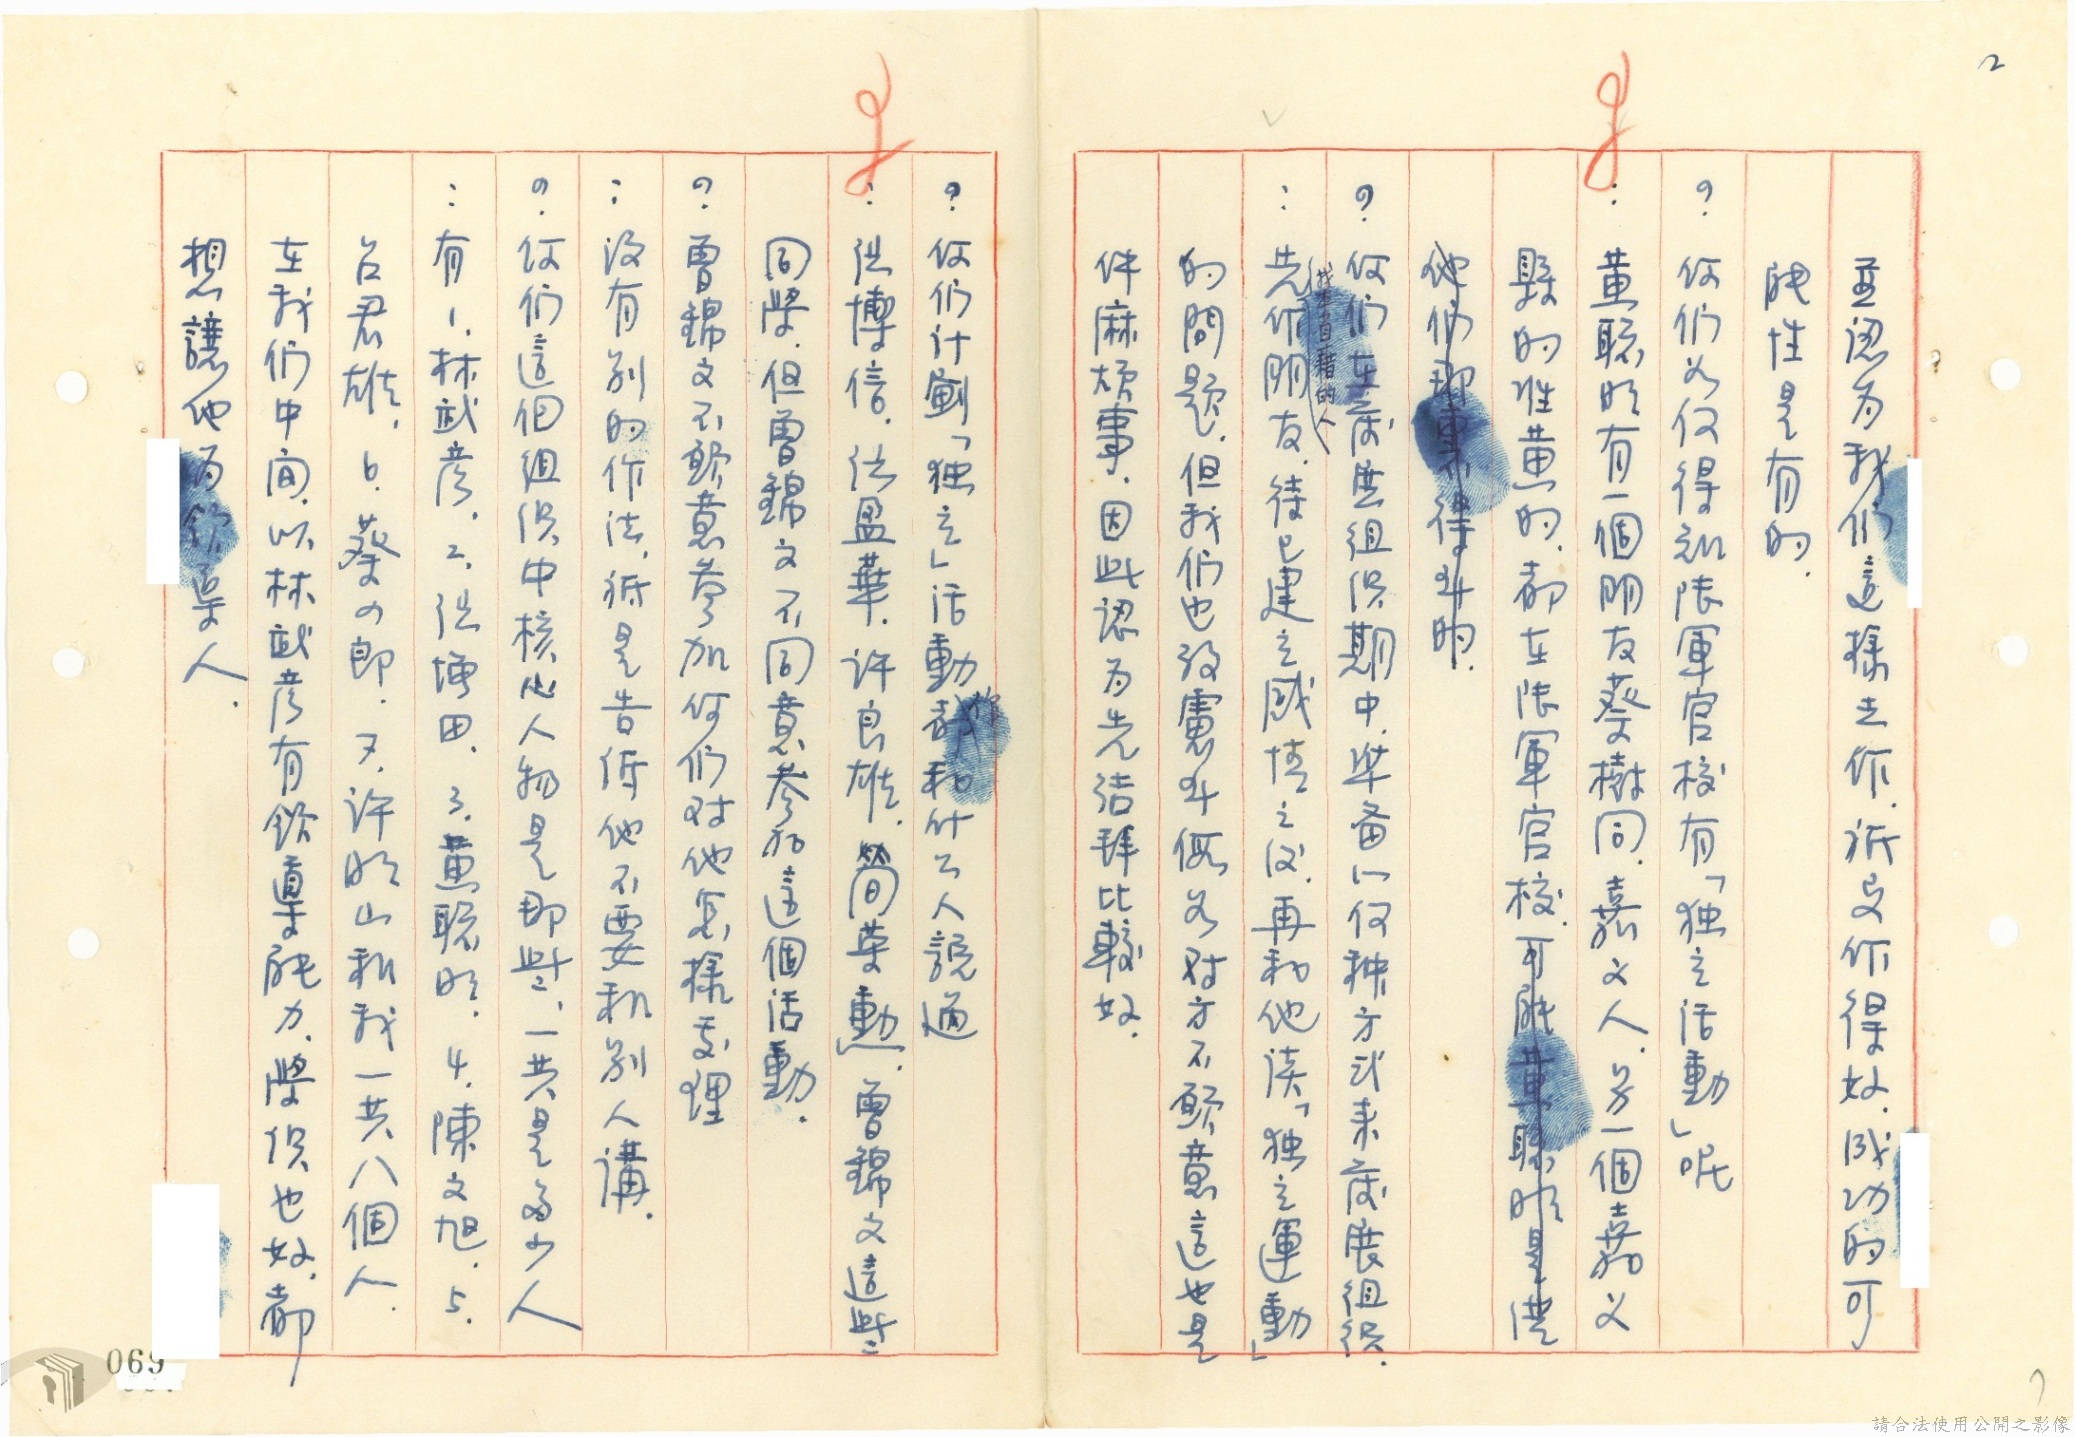 2
並認為我們這樣去作,祇曳作得好,成功的可
能性是有的.
? 你們如何得知陸軍官校有「独立活動」呢
: 黃聰明有一個朋友蔡樹同,嘉义人,另一個嘉义
縣的姓黃的,都在陸軍官校,可能黃聰明是從
他們那里不得叫的.
? 你們在發展組织期中,準备以何种方式来發展組织.
: 先作朋友,待已建立感情之后,再和他談「独立運動」
(找本省藉的人)
的問題,但我們也設慮叫假如对方不願意這也是
件麻煩事,因此認为先结拜比較好.
? 你们计劃「独立」活動都和什么人說過
: 洪博信,洪盈華,許良雄,簡荣勳,曾錦文這些
同學,但曾錦文不同意参加這個活動.
? 曾錦文不願意参加你们对他怎樣處理
: 没有别的作法,祇是告诉他不要和别人講.
? 你们這個組织中核心人物是那些,一共是多少人
: 有1.林武彦,2.洪堉田,3.黃聰明,4.陳文旭,5.
呂君雄,6.蔡四郎,7.許明山和我一共八個人.
在我们中间,以林武彦有領導能力,學识也好,都
想讓他为領導人.
069
請合法使用公開之影像